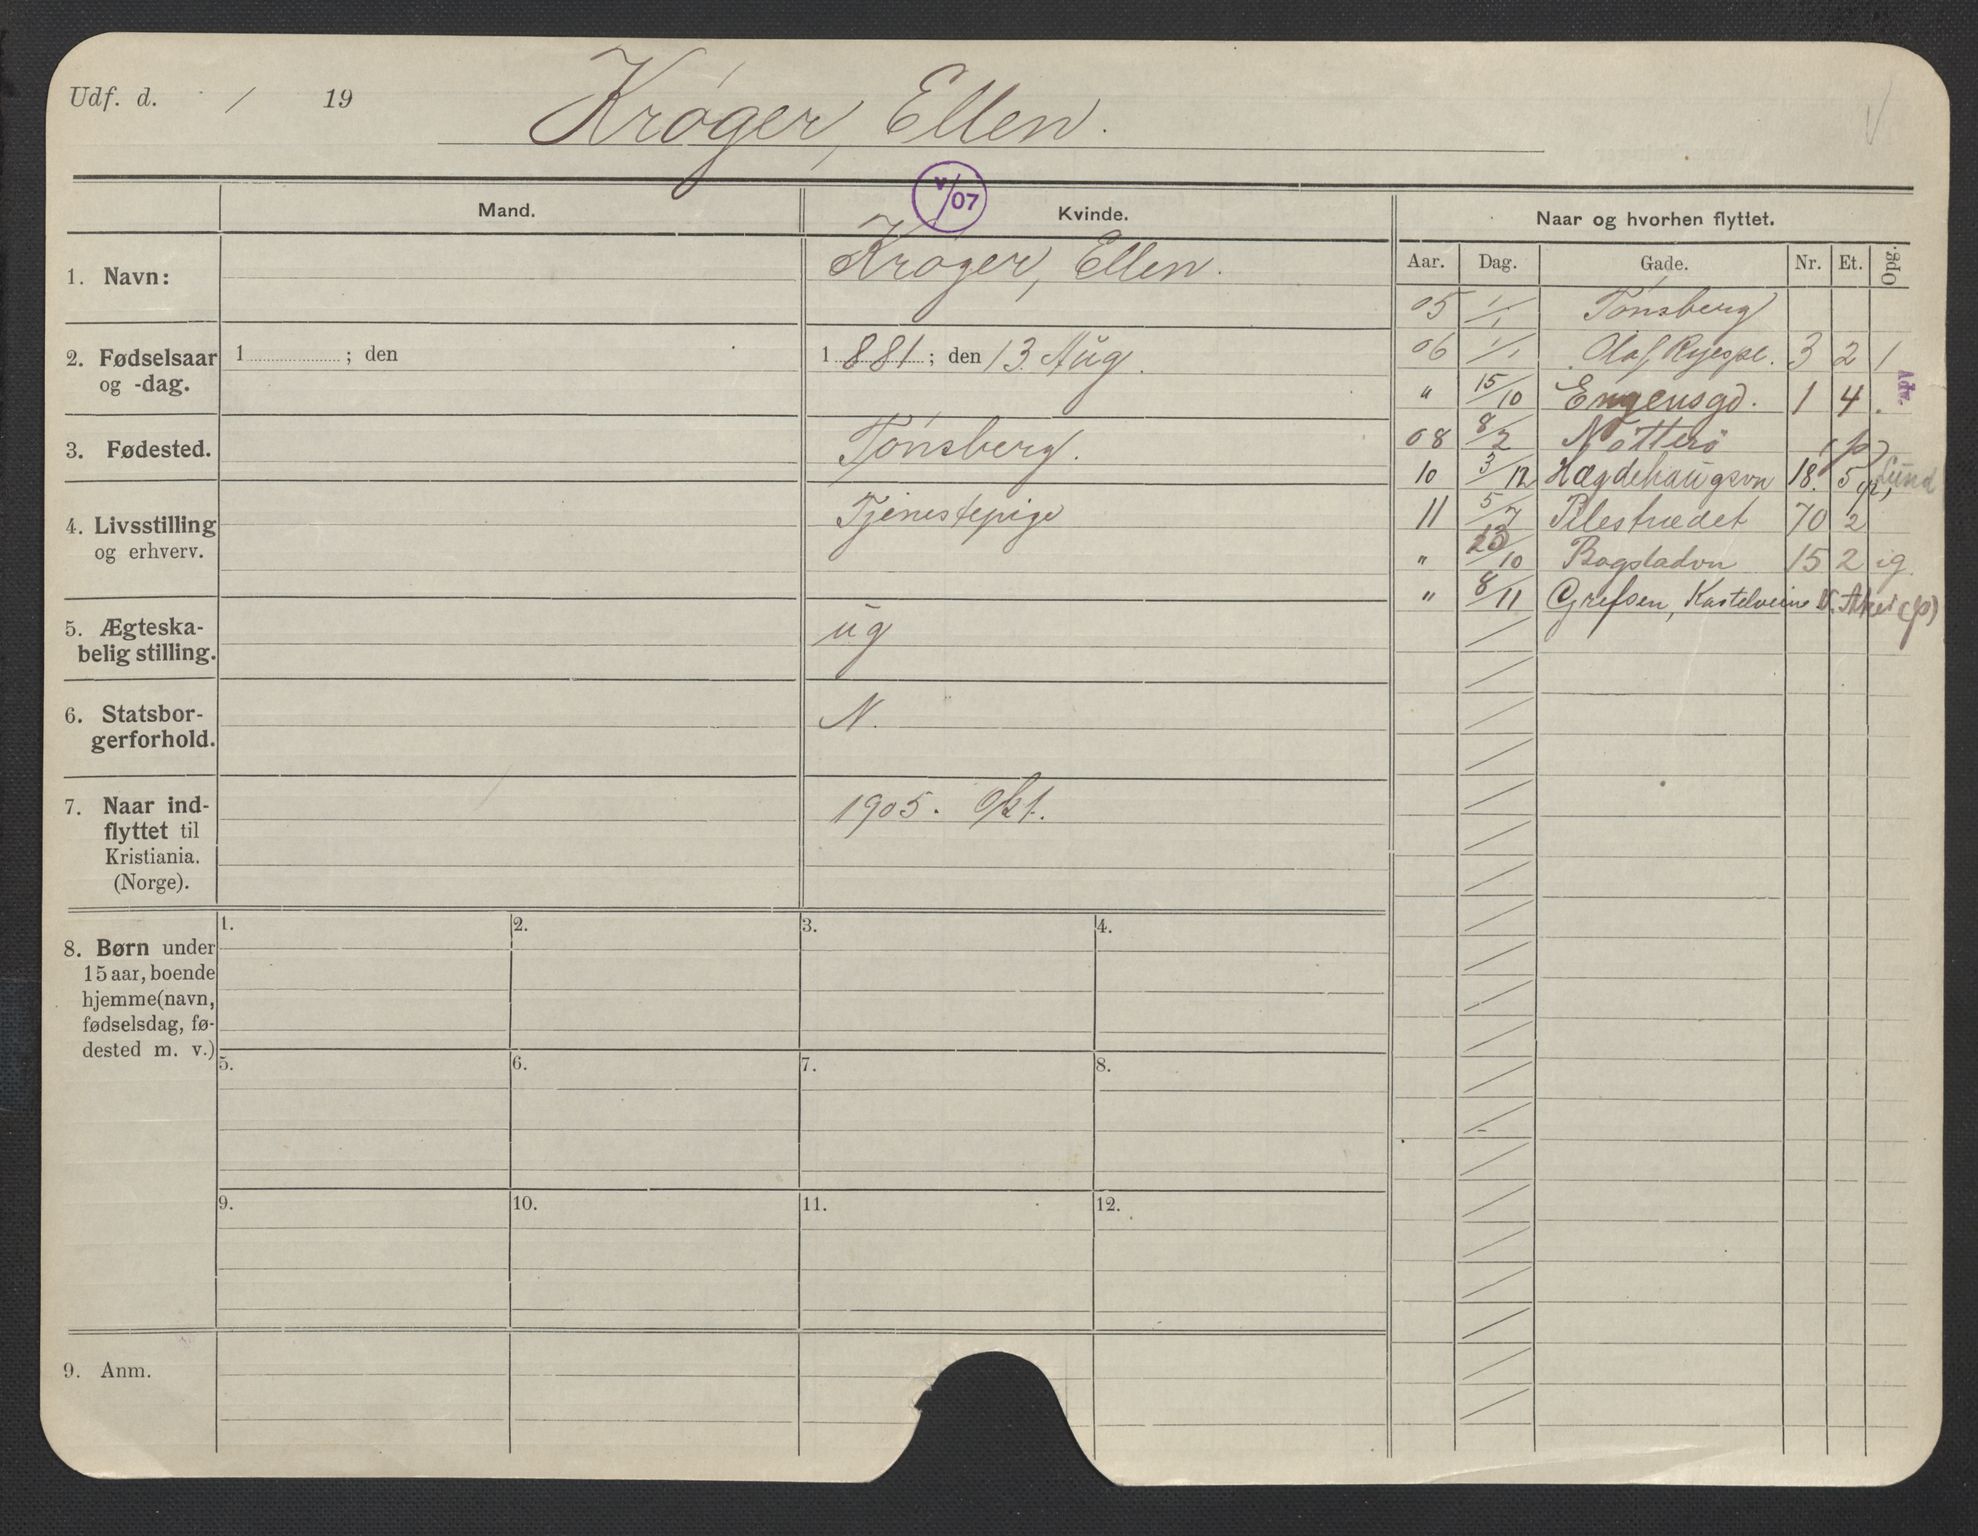 Udf. d. / 19
Krøger, Ellen.
V
Mand.
v/07
Kvinde.
Naar og hvorhen flyttet.
Aar. Dag. Gade. Nr. Et. Opg.
1. Navn:
Krøger, Ellen.
2. Fødselsaar
og -dag.
1 ; den
1 881 ; den 13. Aug.
3. Fødested.
Tönsberg.
4. Livsstilling
og erhverv.
Tjenestepige
5. Ægteska-
belig stilling.
ug
6. Statsbor-
gerforhold.
N.
7. Naar ind-
flyttet til
Kristiania.
(Norge).
1905. Okt.
05 1/1 Tönsberg
06 1/1 Olaf Ryespl. 3 2 1
Adv.
" 15/10 Engensgd. 1 4.
08 8/2 Nötterö (p)
10 3/12 Hægdehaugsvn 18. 5 Lund
11 5/7 Pilestrædet 70 2
" 23/10 Bogstadvn 15 2 ig
" 8/11 Grefsen, Kastelveine V. Aker (p)
8. Børn under
15 aar, boende
hjemme (navn,
fødselsdag, fø-
dested m. v.)
1. 2. 3. 4.
5. 6. 7. 8.
9. 10. 11. 12.
9. Anm.